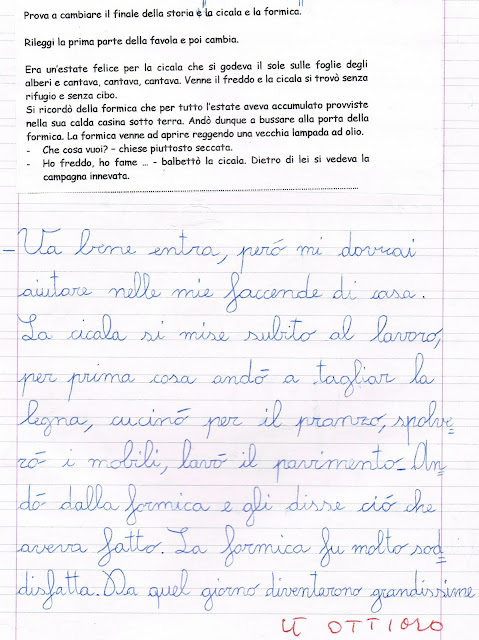 Prova a cambiare il finale della storia "la cicala e la formica.
Rileggi la prima parte della favola e poi cambia.
Era un'estate felice per la cicala che si godeva il sole sulle foglie degli
alberi e cantava, cantava, cantava. Venne il freddo e la cicala si trovò senza
rifugio e senza cibo.
Si ricordò della formica che per tutto l'estate aveva accumulato provviste
nella sua calda casina sotto terra. Andò dunque a bussare alla porta della
formica. La formica venne ad aprire reggendo una vecchia lampada ad olio.
- Che cosa vuoi? – chiese piuttosto seccata.
- Ho freddo, ho fame ... - balbettò la cicala. Dietro di lei si vedeva la
campagna innevata.
- Va bene entra, peró mi dovrai
aiutare nelle mie faccende di casa.
La cicala si mise subito al lavoro,
per prima cosa andó a tagliar la
legna, cucinó per il pranzo, spolve=
ró i mobili, lavó il pavimento. An=
dó dalla formica e gli disse ció che
aveva fatto. La formica fu molto sod=
disfatta. Da quel giorno diventarono grandissime
OTTIMO